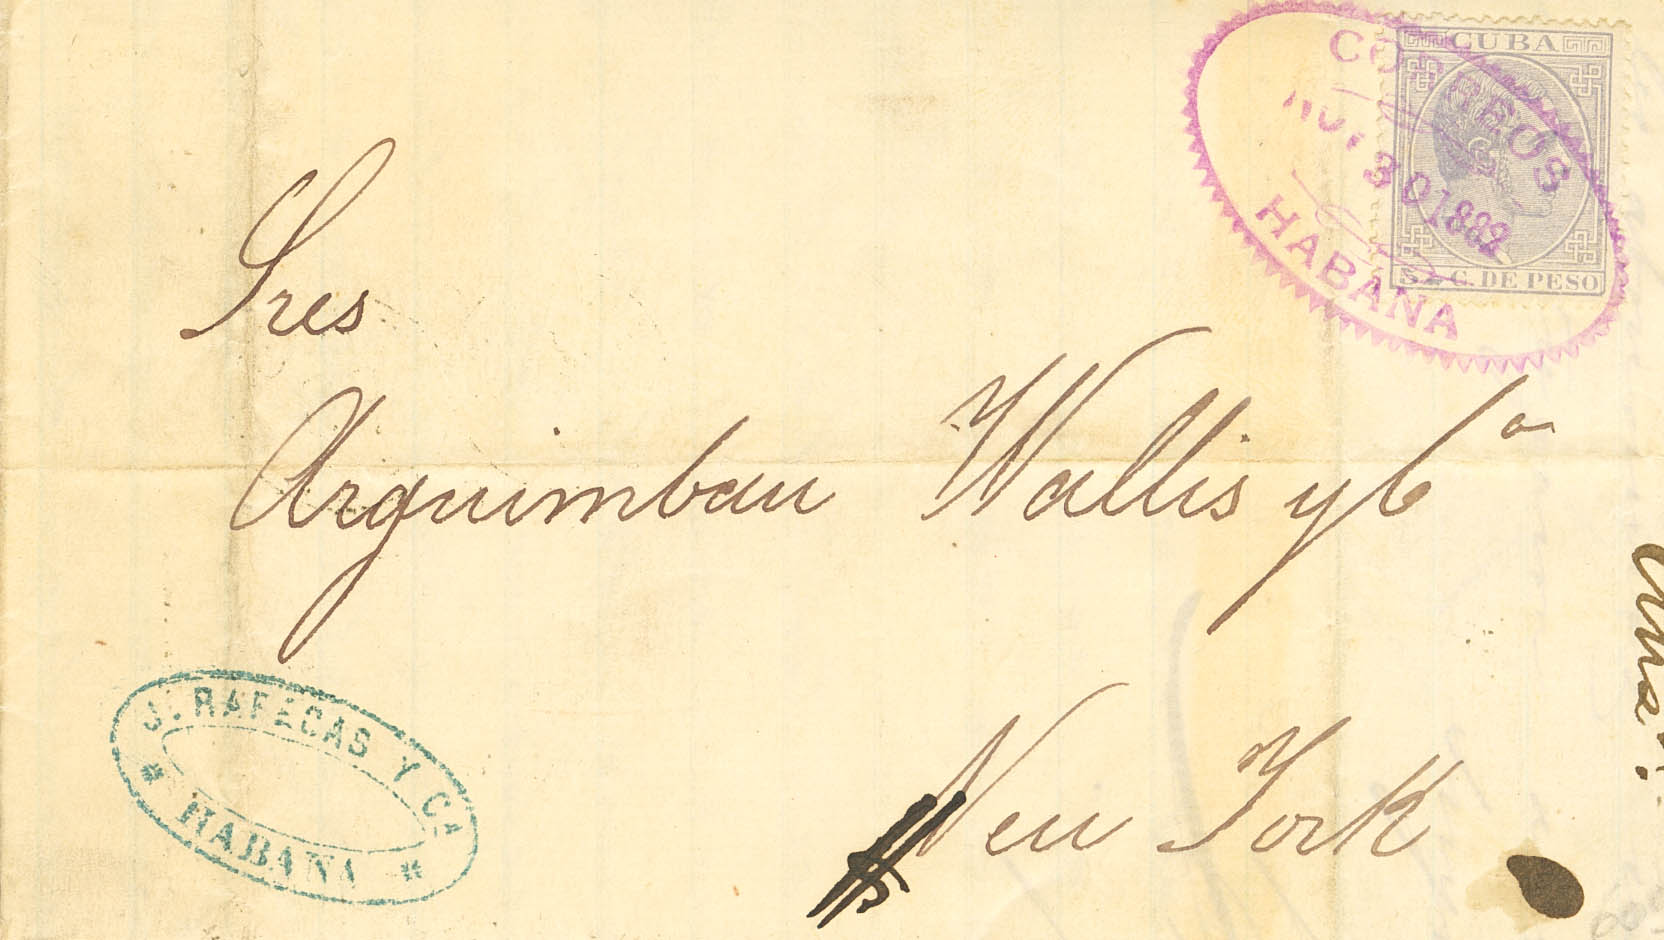 CUBA
CORREOS
NOV 30 1882
HABANA
C. DE PESO
Sres
Arguimbau Wallis y Cª
New York
J. RAFECAS Y Cª
HABANA